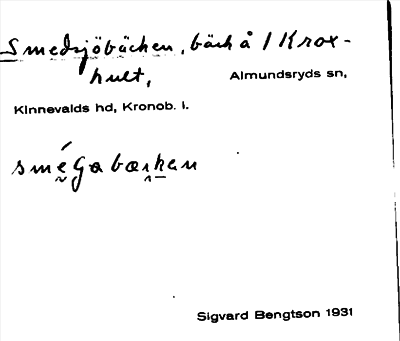 Smedsjöbäcken, bäck å / Krox-
hult, Almundsryds sn,
Kinnevalds hd, Kronob. l.
smégabæken
Sigvard Bengtson 1931